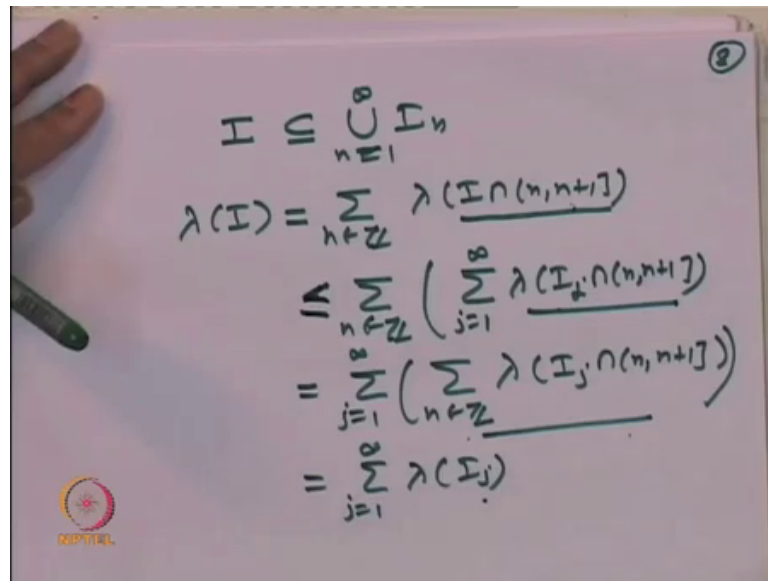 ⑧
I ⊆ ∞⋃n=1 I_n
λ(I) = ∑_{n∈ℤ} λ(I∩(n,n+1])
≤ ∑_{n∈ℤ} ( ∑_{j=1}^{∞} λ(I_j∩(n,n+1])
= ∑_{j=1}^{∞} ( ∑_{n∈ℤ} λ(I_j∩(n,n+1]) )
= ∑_{j=1}^{∞} λ(I_j)
NPTEL